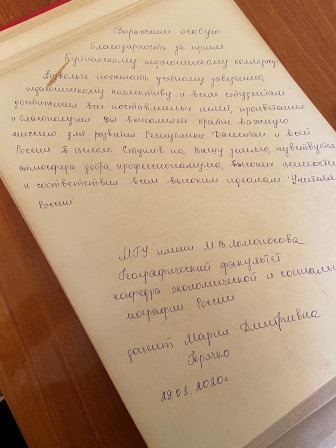 Выражаем особую
благодарность за прием
Буйнакскому педагогическому колледжу.
Позвольте пожелать учебному заведению,
педагогическому коллективу и всем студентам
достижения всех поставленных целей, процветания
и благополучия. Вы выполняете крайне важную
миссию для развития Республики Дагестан и всей
России в целом. Ступив на Вашу землю, чувствуется
атмосфера добра, профессионализма, высоких ценностей
и соответствия всем высоким идеалам Учителя
России
МГУ имени М.В.Ломоносова
Географический факультет
кафедра экономической и социальн
географии России
доцент Мария Дмитриевна
Горячко
29.03.2020г